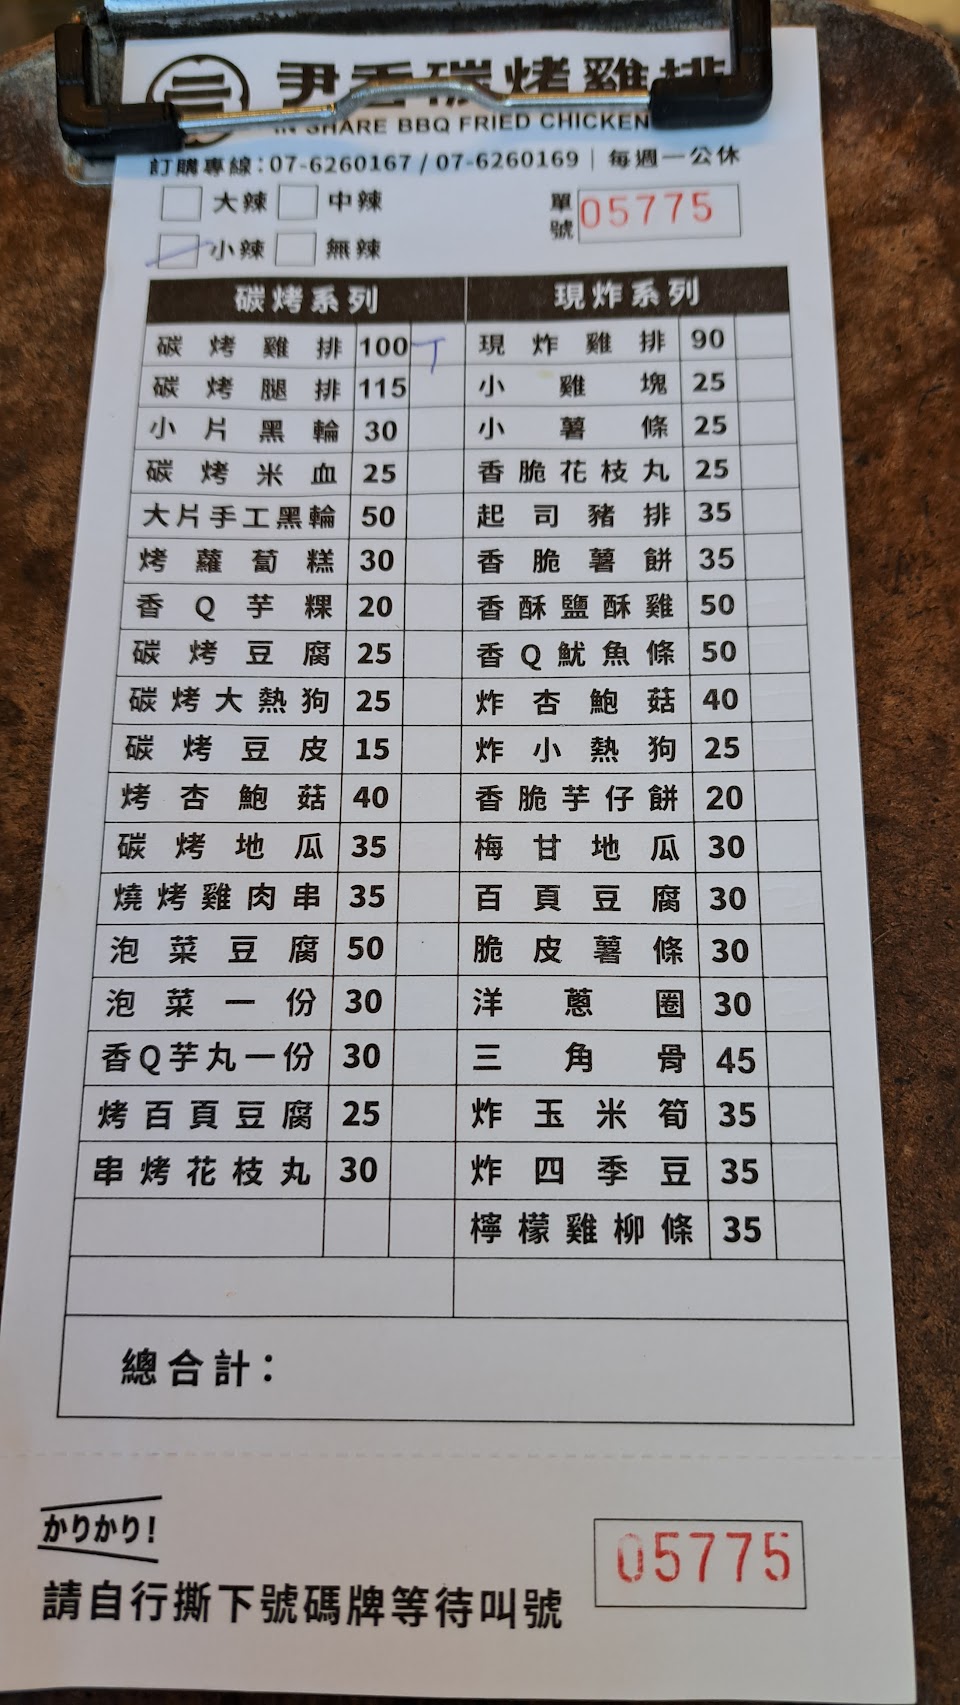 尹香碳烤雞排
IN SHARE BBQ FRIED CHICKEN
訂購專線:07-6260167 / 07-6260169 | 每週一公休
大辣 中辣
單號 05775
小辣 無辣
碳烤系列 現炸系列
碳烤雞排 100 現炸雞排 90
碳烤腿排 115 小雞塊 25
小片黑輪 30 小薯條 25
碳烤米血 25 香脆花枝丸 25
大片手工黑輪 50 起司豬排 35
烤蘿蔔糕 30 香脆薯餅 35
香Q芋粿 20 香酥鹽酥雞 50
碳烤豆腐 25 香Q魷魚條 50
碳烤大熱狗 25 炸杏鮑菇 40
碳烤豆皮 15 炸小熱狗 25
烤杏鮑菇 40 香脆芋仔餅 20
碳烤地瓜 35 梅甘地瓜 30
燒烤雞肉串 35 百頁豆腐 30
泡菜豆腐 50 脆皮薯條 30
泡菜一份 30 洋蔥圈 30
香Q芋丸一份 30 三角骨 45
烤百頁豆腐 25 炸玉米筍 35
串烤花枝丸 30 炸四季豆 35
檸檬雞柳條 35
總合計:
かりかり!
請自行撕下號碼牌等待叫號
05775